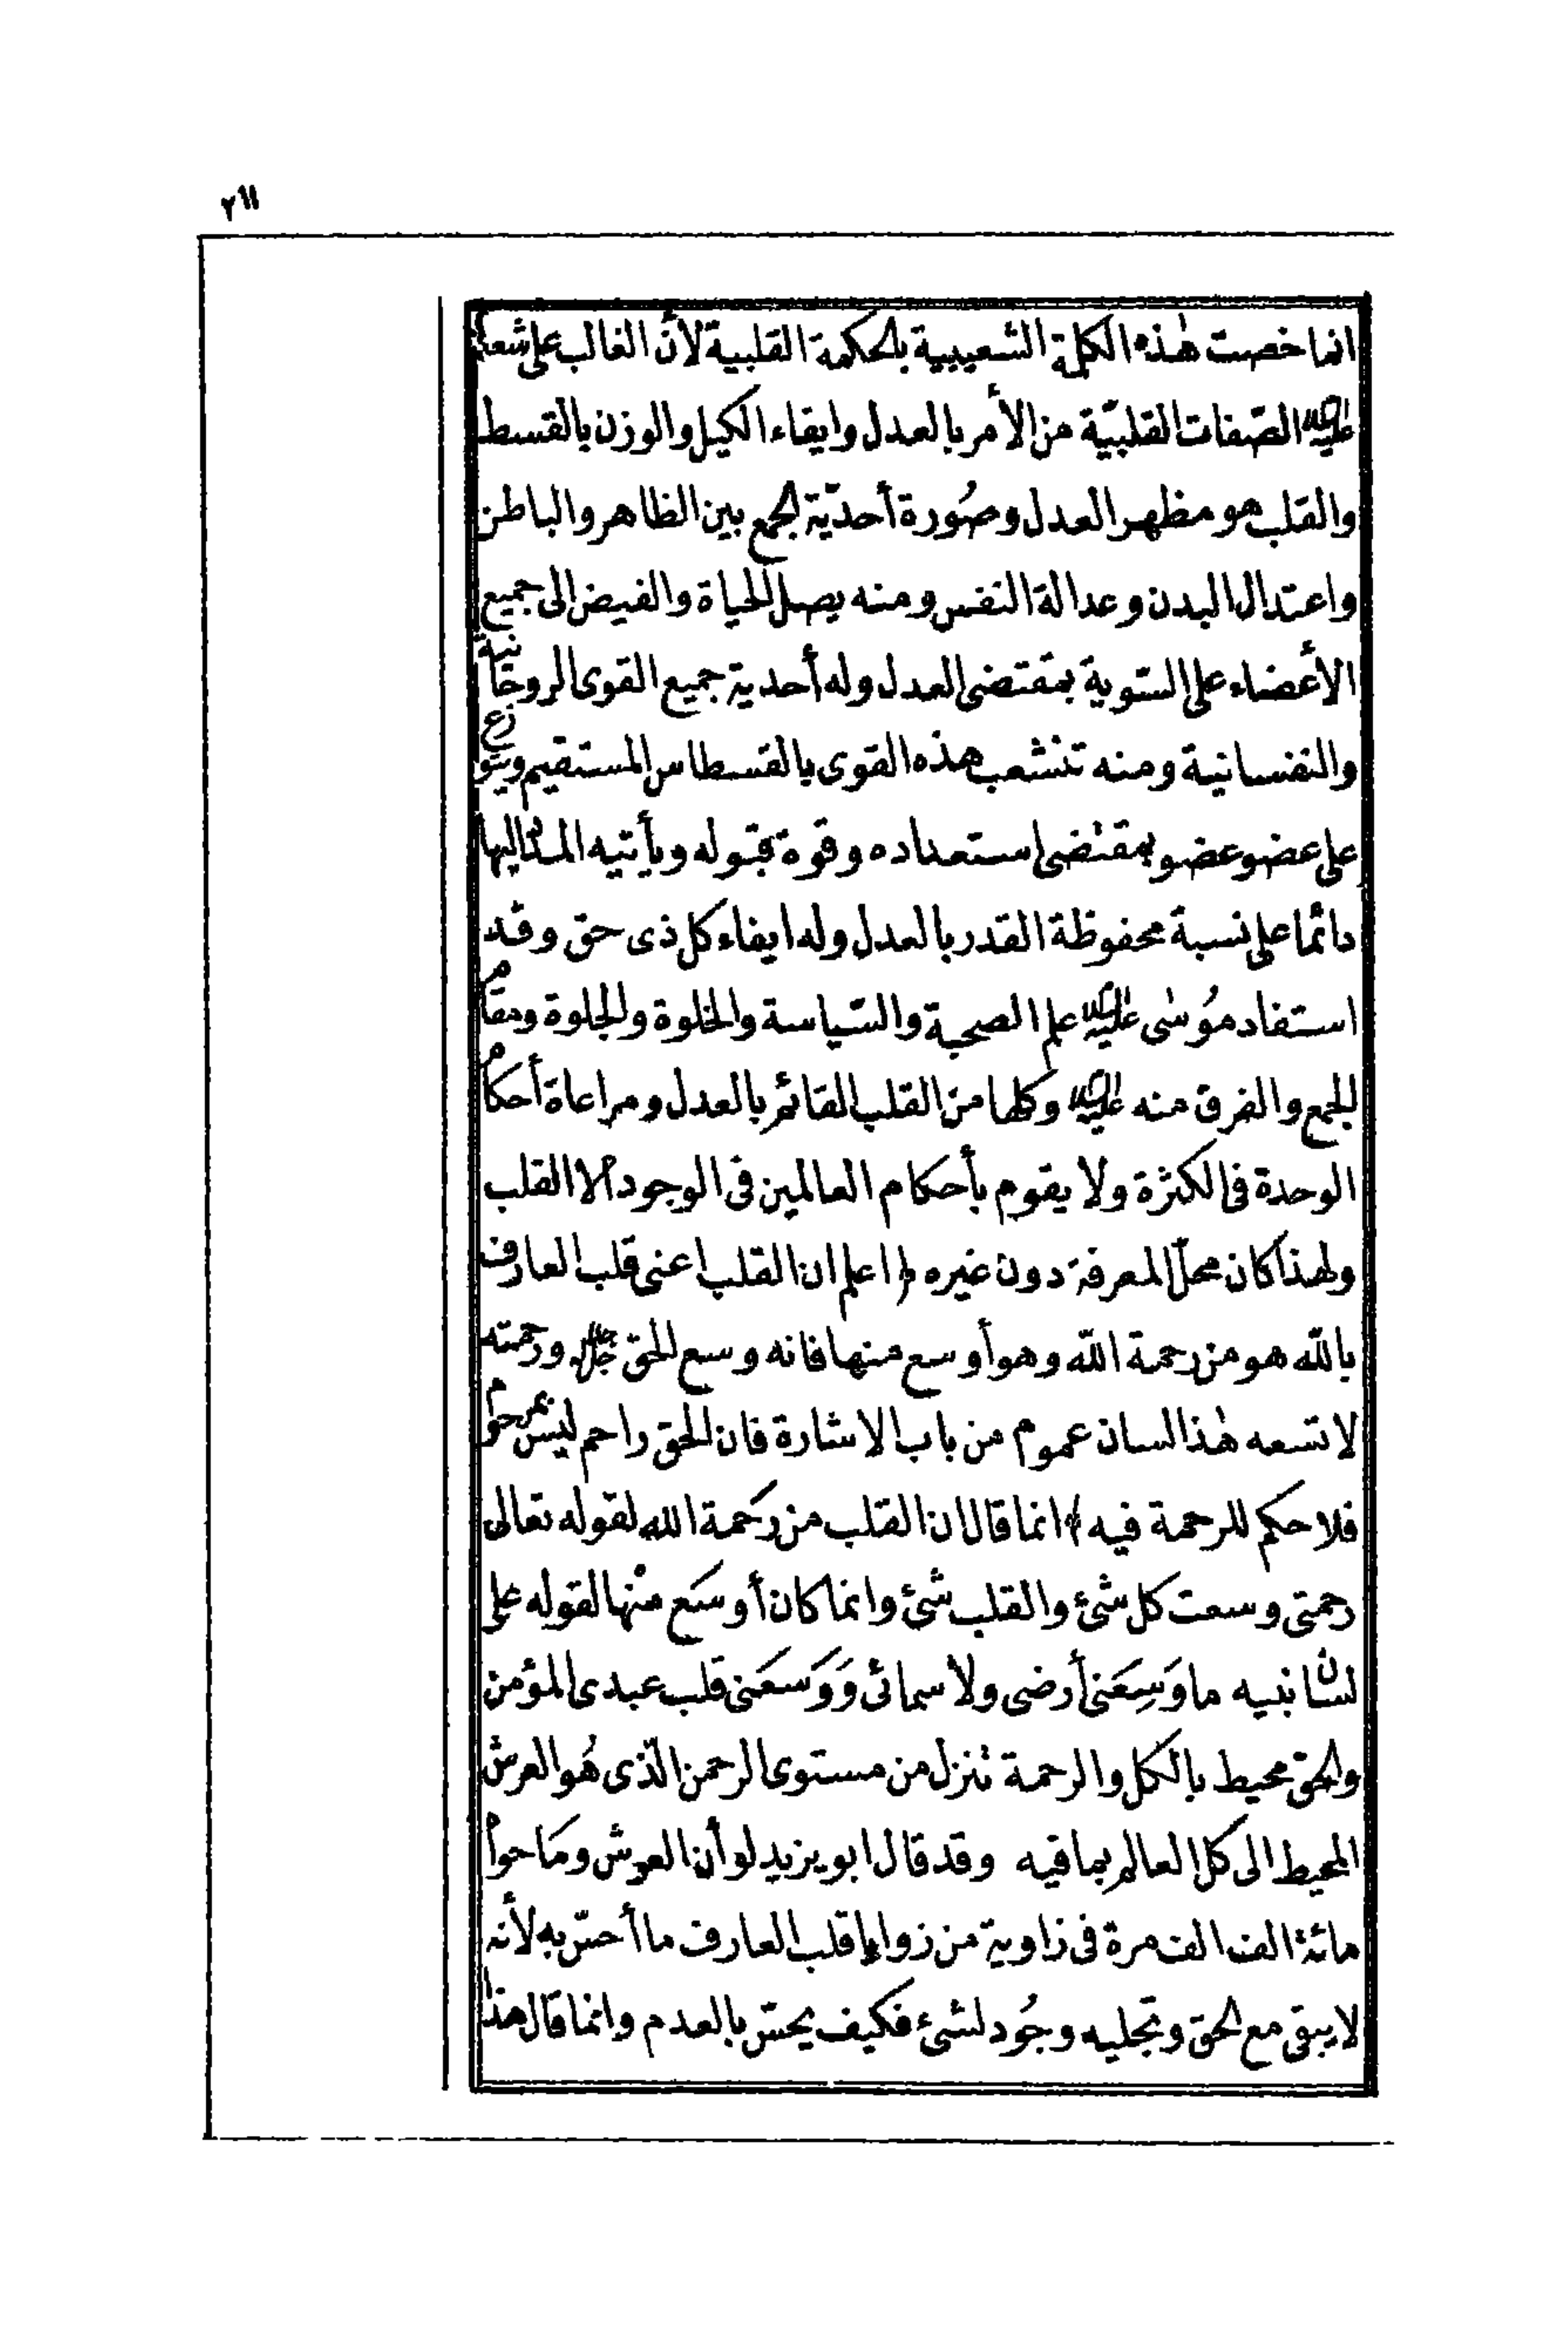 ٢١١
انما خصت هذه الكلمة الشعيبية بالحكمة القلبية لأن الغالب على شعيب
عليه السلام الصّفات القلبيّة من الأمر بالعدل وايفاء الكيل والوزن بالقسط
والقلب هو مظهر العدل وصُورة أحديّة الجمع بين الظاهر والباطن
واعتدال البدن وعدالة النفس ومنه يصل الحياة والفيض الى جميع
الأعضاء على السّوية بمقتضى العدل وله أحدية جميع القوى الروحانية
والنفسانية ومنه تنشعب هذه القوى بالقسطاس المستقيم ويتوزع
على عضو عضو بمقتضى استعداده وقوة قبوله ويأتيه المدد اليها
دائما على نسبة محفوظة القدر بالعدل وله ايفاء كل ذى حق وقد
استفاد مُوسٰى عليه السلام علم الصحبة والسّياسة والخلوة والجلوة ومقام
الجمع والفرق منه عليه السلام وكلها من القلب القائم بالعدل ومراعاة أحكام
الوحدة فى الكثرة ولا يقوم بأحكام العالمين فى الوجود الا القلب
ولهذا كان محلّ المعرفة دون غيره ﴿ اعلم ان القلب اعنى قلب العارف
بالله هو من رحمة الله وهو أوسع منها فانه وسع الحق جل جلاله ورحمته
لا تسعه هٰذا لسان عموم من باب الاشارة فان الحق راحم ليس بمرحوم
فلا حكم للرحمة فيه ﴾ انما قال ان القلب من رحمة الله لقوله تعالى
رحمتى وسعت كل شئ والقلب شئ وانما كان أوسَع منها لقوله على
لسان نبيه ما وَسِعَنى أرضى ولا سمائى وَوَسعَنى قلب عبدى المؤمن
والحق محيط بالكل والرحمة تنزل من مستوى الرحمن الّذى هُو العرش
المحيط الى كل العالم بما فيه وقد قال ابو يزيد لو أن العرش ومَا حواه
مائة الف الف مرة فى زاوية من زوايا قلب العارف ما أحسّ به لأنه
لا يبقى مع الحق وتجليه وجُود لشئ فكيف يحسّ بالعدم وانما قال هذا